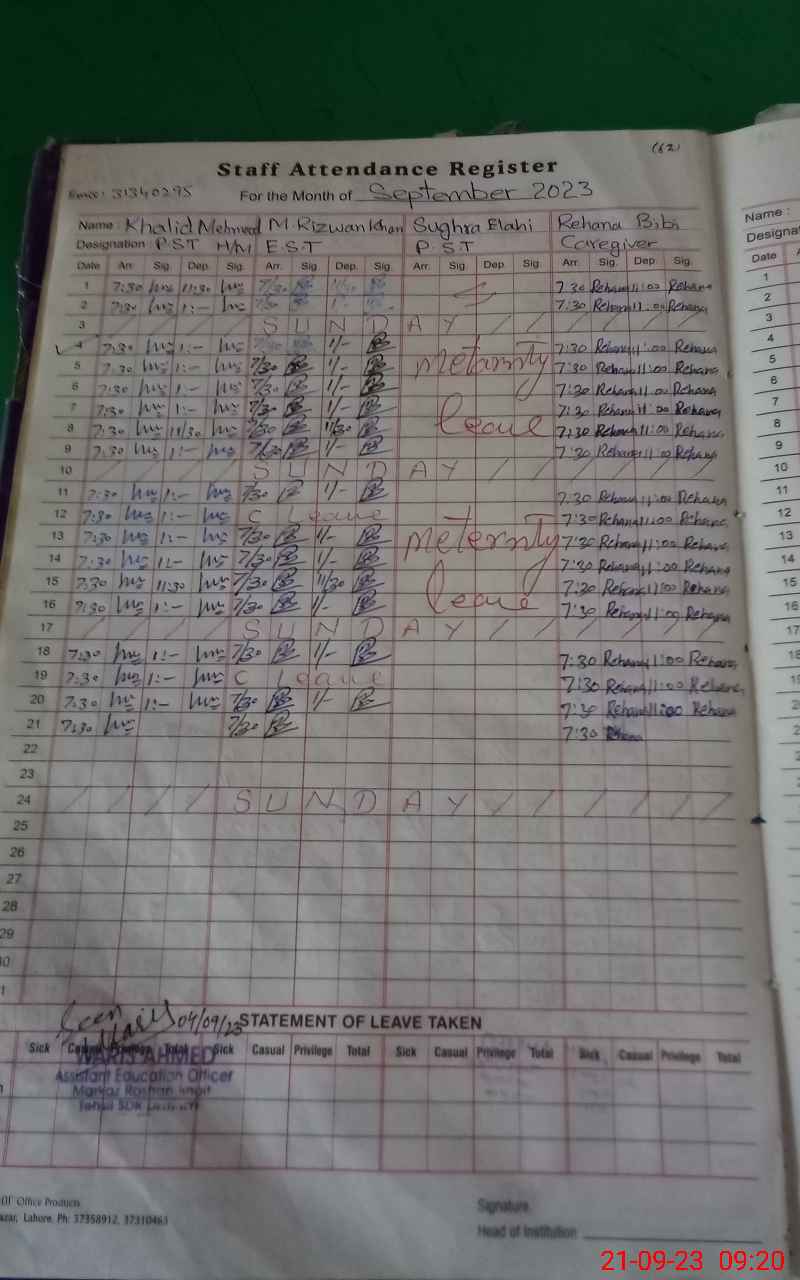 (62)
Staff Attendance Register
Emcc: 31340295 For the Month of September 2023
Name : Khalid Mehmood M. Rizwan Khan Sughra Elahi Rehana Bibi
Designation : P.S.T H/M E.S.T P.S.T Caregiver
Date Arr. Sig. Dep. Sig. Arr. Sig. Dep. Sig. Arr. Sig. Dep. Sig. Arr. Sig. Dep. Sig.
1 7:30 11:30 7/30 11/30 7:30 Rehana 11:00 Rehana
2 7:30 1:- 7/30 7:30 Rehana 11:00 Rehana
3 / / / / S U N D A Y / / / / / /
4 7:30 1:- 1/- 7:30 Rehana 11:00 Rehana
5 7:30 1:- 7/30 1/- Metarnity 7:30 Rehana 11:00 Rehana
6 7:30 1:- 7/30 1/- 7:30 Rehana 11:00 Rehana
7 7:30 1:- 7/30 1/- 7:30 Rehana 11:00 Rehana
8 7:30 11/30 7/30 11/30 leave 7:30 Rehana 11:00 Rehana
9 7:30 1:- 7/30 1/- 7:30 Rehana 11:00 Rehana
10 / / / / S U N D A Y / / / / / /
11 7:30 1:- 7/30 1/- 7:30 Rehana 11:00 Rehana
12 7:30 1:- C Leave 7:30 Rehana 11:00 Rehana
13 7:30 1:- 7/30 1/- Meternity 7:30 Rehana 11:00 Rehana
14 7:30 1:- 7/30 1/- 7:30 Rehana 11:00 Rehana
15 7:30 11:30 7/30 11/30 leave 7:30 Rehana 11:00 Rehana
16 7:30 1:- 7/30 1/- 7:30 Rehana 11:00 Rehana
17 / / / / S U N D A Y / / / / / /
18 7:30 1:- 7/30 1/- 7:30 Rehana 11:00 Rehana
19 7:30 1:- C Leave 7:30 Rehana 11:00 Rehana
20 7:30 1:- 7/30 1/- 7:30 Rehana 11:00 Rehana
21 7:30 7/30 7:30 Rehana
22
23
24 / / / / S U N D A Y / / / / / /
25
26
27
28
29
30
1
04/09/23 STATEMENT OF LEAVE TAKEN
Sick Casual Privilege Total Sick Casual Privilege Total Sick Casual Privilege Total Sick Casual Privilege Total
AHMED
Assistant Education Officer
Markaz Roshan
Office Products
azar, Lahore. Ph: 37358912, 37310463
Signature
Head of Institution
Name :
Designat
Date
1
2
3
4
5
6
7
8
9
10
11
12
13
14
15
16
17
21-09-23 09:20